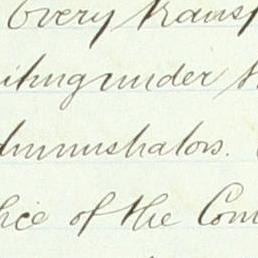 Every transf
iting under
dministrators.
fice of the Com